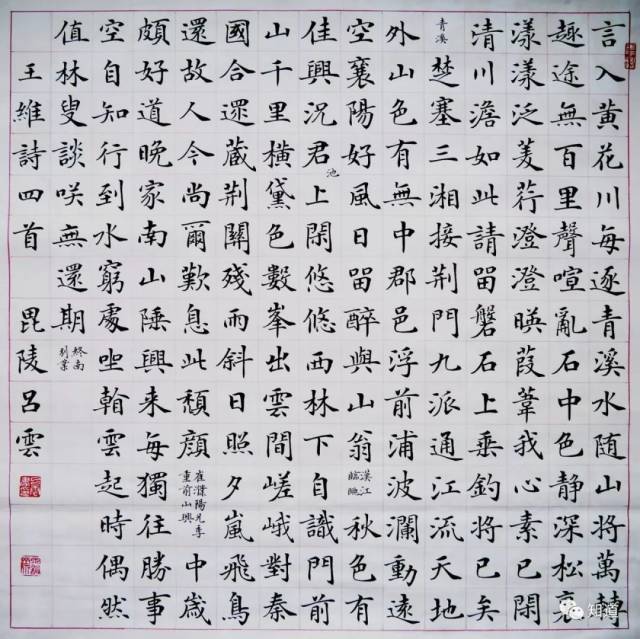 言入黃花川每逐青溪水随山將萬轉
趣途無百里聲喧亂石中色靜深松裏
漾漾泛菱荇澄澄暎葭葦我心素已閑
清川澹如此請畱磐石上垂釣將已矣
青溪 楚塞三湘接荆門九派通江流天地
外山色有無中郡邑浮前浦波瀾動遠
空襄陽好風日畱醉與山翁 漢江臨眺 秋色有
佳興況君池上閑悠悠西林下自識門前
山千里橫黛色數峯出雲間嵯峨對秦
國合遝藏荆關殘雨斜日照夕嵐飛鳥
還故人今尚爾歎息此頹顏 崔濮陽兄季重前山興 中歲
頗好道晚家南山陲興来每獨往勝事
空自知行到水窮處坐翰雲起時偶然
值林叟談咲無還期 終南別業
王維詩四首 毘陵呂雲
知道